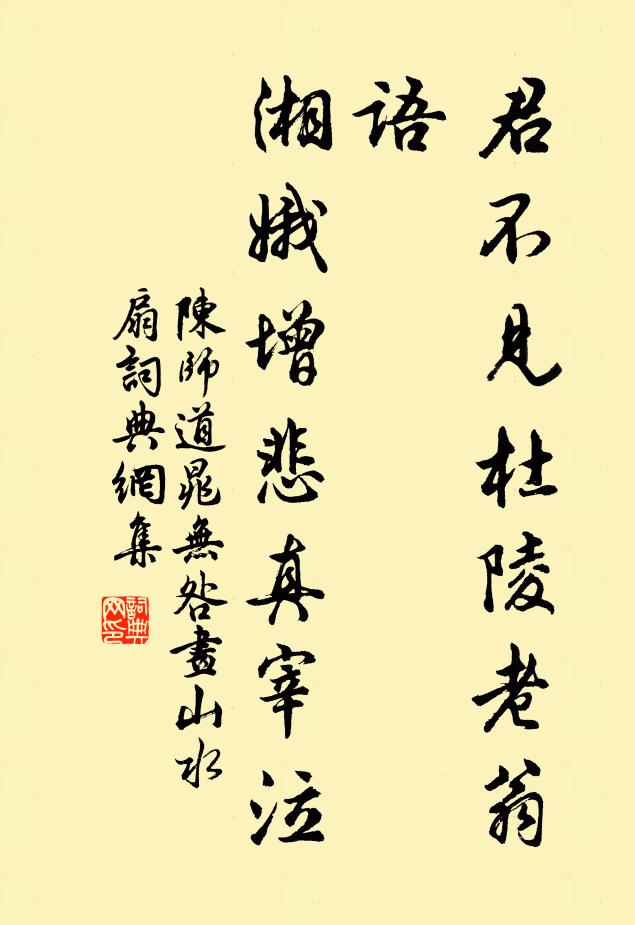 君不見杜陵老翁
語
湘娥增悲真宰泣
陳師道晁無咎畫山水
扇詞典網集
詞典
网印